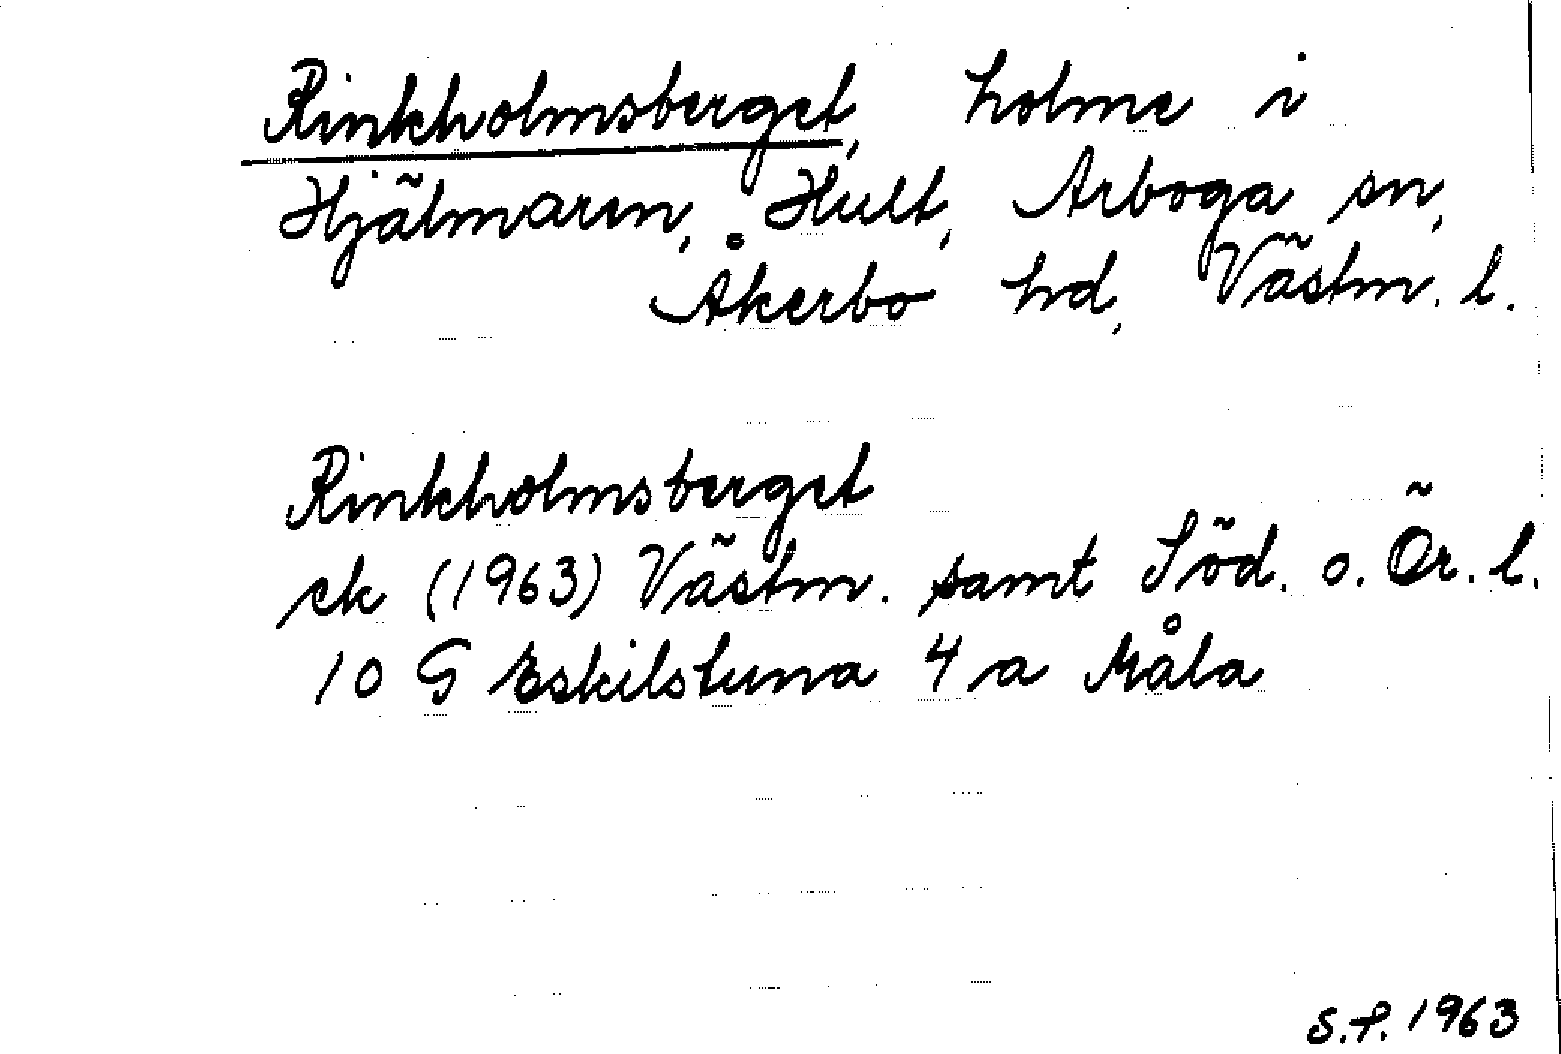 Rinkholmsberget, holme i
Hjälmaren, Hult, Arboga sn,
Åkerbo hd, Västm. l.
Rinkholmsberget
ek (1963) Västm. samt Söd. o. Ör. l.
10 G Eskilstuna 4 a Måla
S.P. 1963